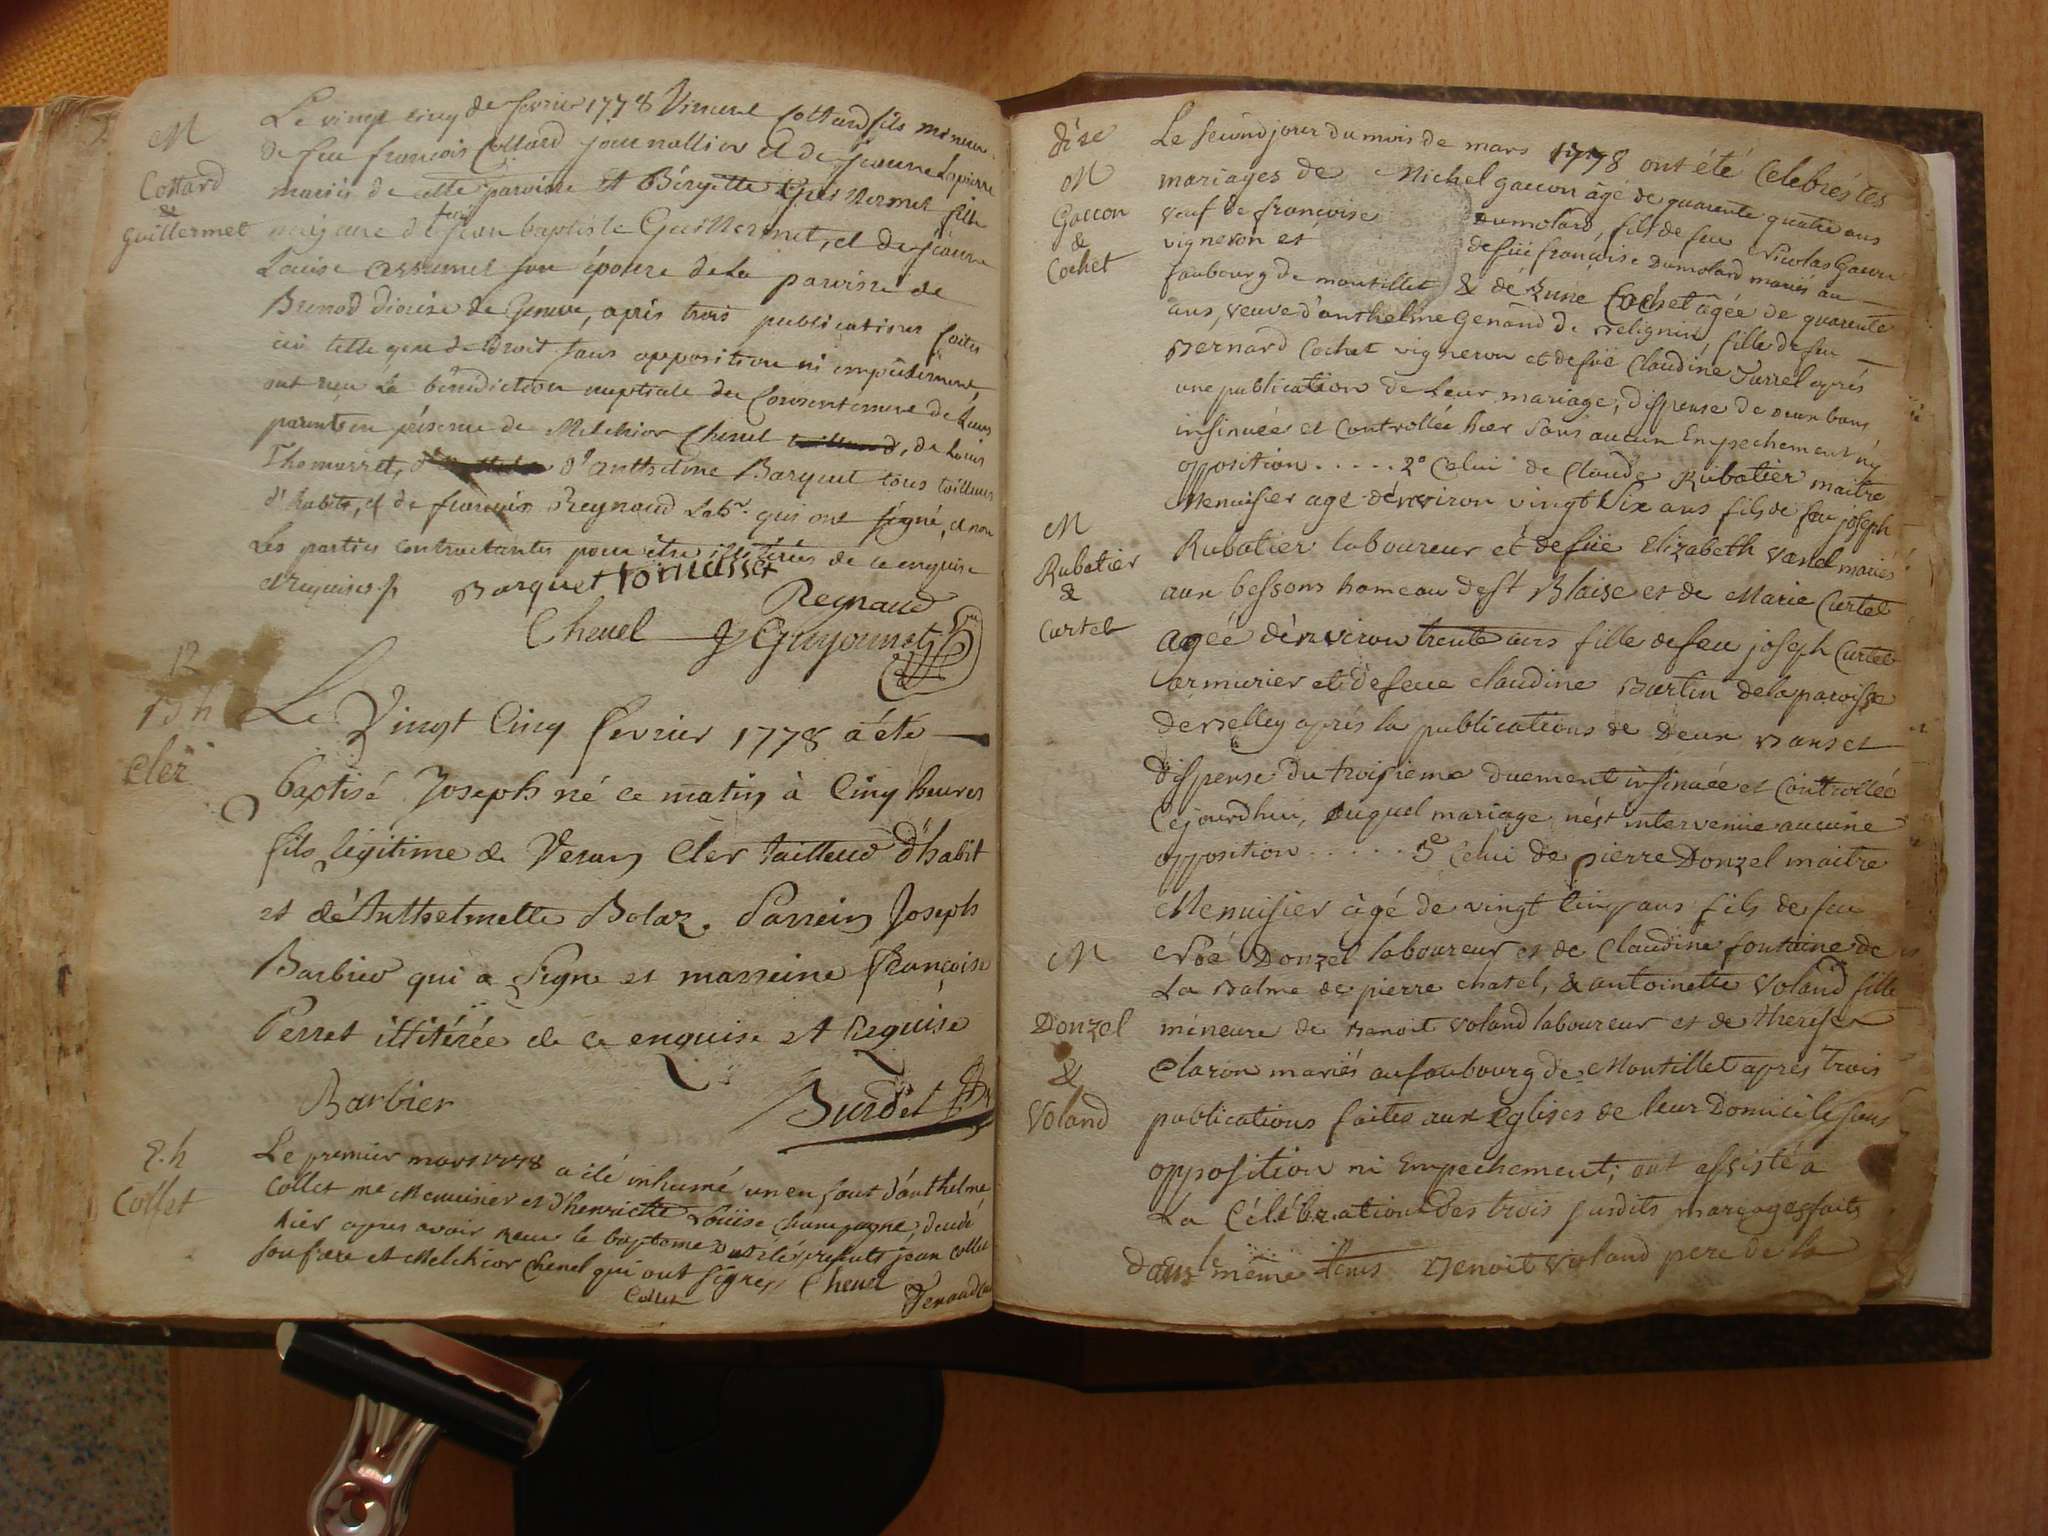 M
Cottard
&
Guillermet
Le vingt cinq de fevrier 1778 Vincent Cottard fils mineur
de feu françois Cottard journallier et de jeanne Lapierre
mariés de cette paroisse et Bérgitte Guillermet fille
majeure de feu jean baptiste Guillermet, et de jeanne
Louise assumel son épouse de la paroisse de
Brenod diocèse de Geneve, après trois publications faites
ici telle que de Droit sans opposition ni empêchement
ont reçu la bénédiction nuptiale du Consentement de Leurs
parents en présence de Melchior Chenel, de Louis
Thomasset, d'anthelme Barquet tous tailleurs
d'habits, et de françois Reynaud Labr. qui ont signé, et non
Les parties contractantes pour être illitérées de ce enquise
et requises
Barquet tomasset
Reynaud
Chenel J Guyonnet
12
B h
Cler
Le Vingt Cinq fevrier 1778 a été
baptisé Joseph né ce matin à Cinq heures
fils légitime de Veran Cler tailleur d'habit
et de Anthelmette Bolaz. Parrein Joseph
Barbier qui a Signe et marreine françoise
Perret illitérée de ce enquise et Requise
Barbier Burdet
E. h
Collet
Le premier mars 1778 a été inhumé un enfant d'anthelme
Collet me Menuisier et d'henriette Loüise Champagne, decedé
hier apres avoir reçu le bapteme ont été presents jean Collet
son frere et Melchior Chenel qui ont signes Chenel
Collet
M
Gaccon
&
Cochet
Le second jour du mois de mars 1778 ont été Celebrés les
mariages de Michel gaccon âgé de quarente quatre ans
veuf de françoise Dumolard, fils de feu Nicolas Gaccon
vigneron et de füe françoise Dumolard mariés au
faubourg de montillet & de Cochet agée de quarente
ans, veuve d'anthelme Genand de Belignin, fille de feu
Bernard Cochet vigneron et de füe Claudine Turrel après
une publication de Leur mariage, dispense de deux bans
insinuée et Controllée hier sans aucun Empechement ny
opposition ..... 2° Celui de Claude Rubatier maitre
Menuisier age d'énviron vingt Six ans fils de feu joseph
M
Rubatier
&
Curtet
Rubatier laboureur et de füe Elizabeth mariés
aux bessons hameau de St Blaise et de Marie Curtet
agée d'énviron trente ans fille de feu joseph Curtet
armurier et de feue claudine Burtin de la paroisse
de Belley après la publications de Deux Bans et
dispense du troisieme duement insinuée et Controllée
Cejourdhui, auquel mariage n'ést intervenüe aucune
opposition ..... 3e Celui de pierre Donzel maitre
Menuisier âgé de vingt Cinq ans fils de feu
M
Donzel
&
Voland
Noé Donzel laboureur et de Claudine fontaine de
La Balme de pierre chatel, & antoinette Voland fille
mineure de Benoit Voland laboureur et de therese
Claron mariés au faubourg de Montillet après trois
publications faites aux Eglises de leur Domicile sans
opposition ni Empechement; ont assisté a
La Célébration Des trois susdits mariages faits
dans le même tems Benoit Voland pere de la